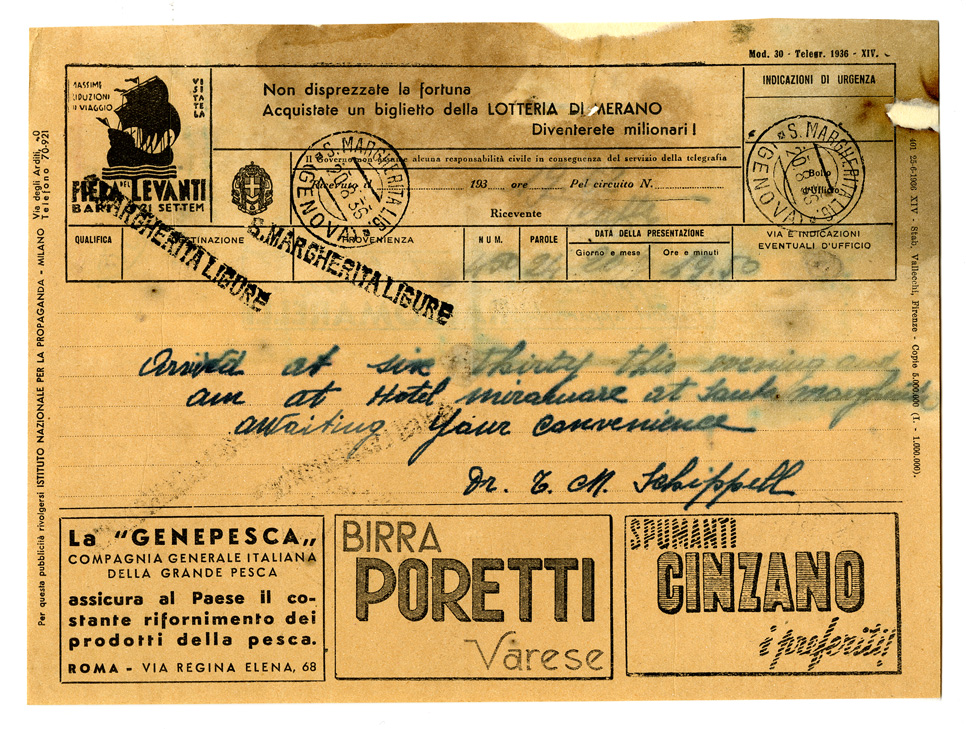 Mod. 30 - Telegr. 1936 - XIV.
MASSIME
RIDUZIONI
DI VIAGGIO
VISITATELA
FIERA DEL LEVANTE
BARI SETTEM
Non disprezzate la fortuna
Acquistate un biglietto della LOTTERIA DI MERANO
Diventerete milionari!
INDICAZIONI DI URGENZA
Il Governo non assume alcuna responsabilità civile in conseguenza del servizio della telegrafia
Ricevuto il 193 ore Pel circuito N.
Ricevente
S. MARGHERITA LIG.
(GENOVA)
Bollo
d'Ufficio
S. MARGHERITA LIG.
(GENOVA)
QUALIFICA
DESTINAZIONE
PROVENIENZA
NUM.
PAROLE
DATA DELLA PRESENTAZIONE
Giorno e mese
Ore e minuti
VIA E INDICAZIONI
EVENTUALI D'UFFICIO
24
19.50
MARGHERITA LIGURE
S. MARGHERITA LIGURE
Arrived at six thirty this evening and
am at Hotel miramare at Santa margherita
awaiting your convenience
Dr. T. M. Schippell
La "GENEPESCA"
COMPAGNIA GENERALE ITALIANA
DELLA GRANDE PESCA
assicura al Paese il co-
stante rifornimento dei
prodotti della pesca.
ROMA - VIA REGINA ELENA, 68
BIRRA
PORETTI
Varese
SPUMANTI
CINZANO
i preferiti!
Per questa pubblicità rivolgersi ISTITUTO NAZIONALE PER LA PROPAGANDA - MILANO Via degli Arditi, 40
Telefono 70-921
25-6-1936 XIV - Stab. Vallecchi, Firenze - Copie 5.000.000 (1. - 1.000.000).